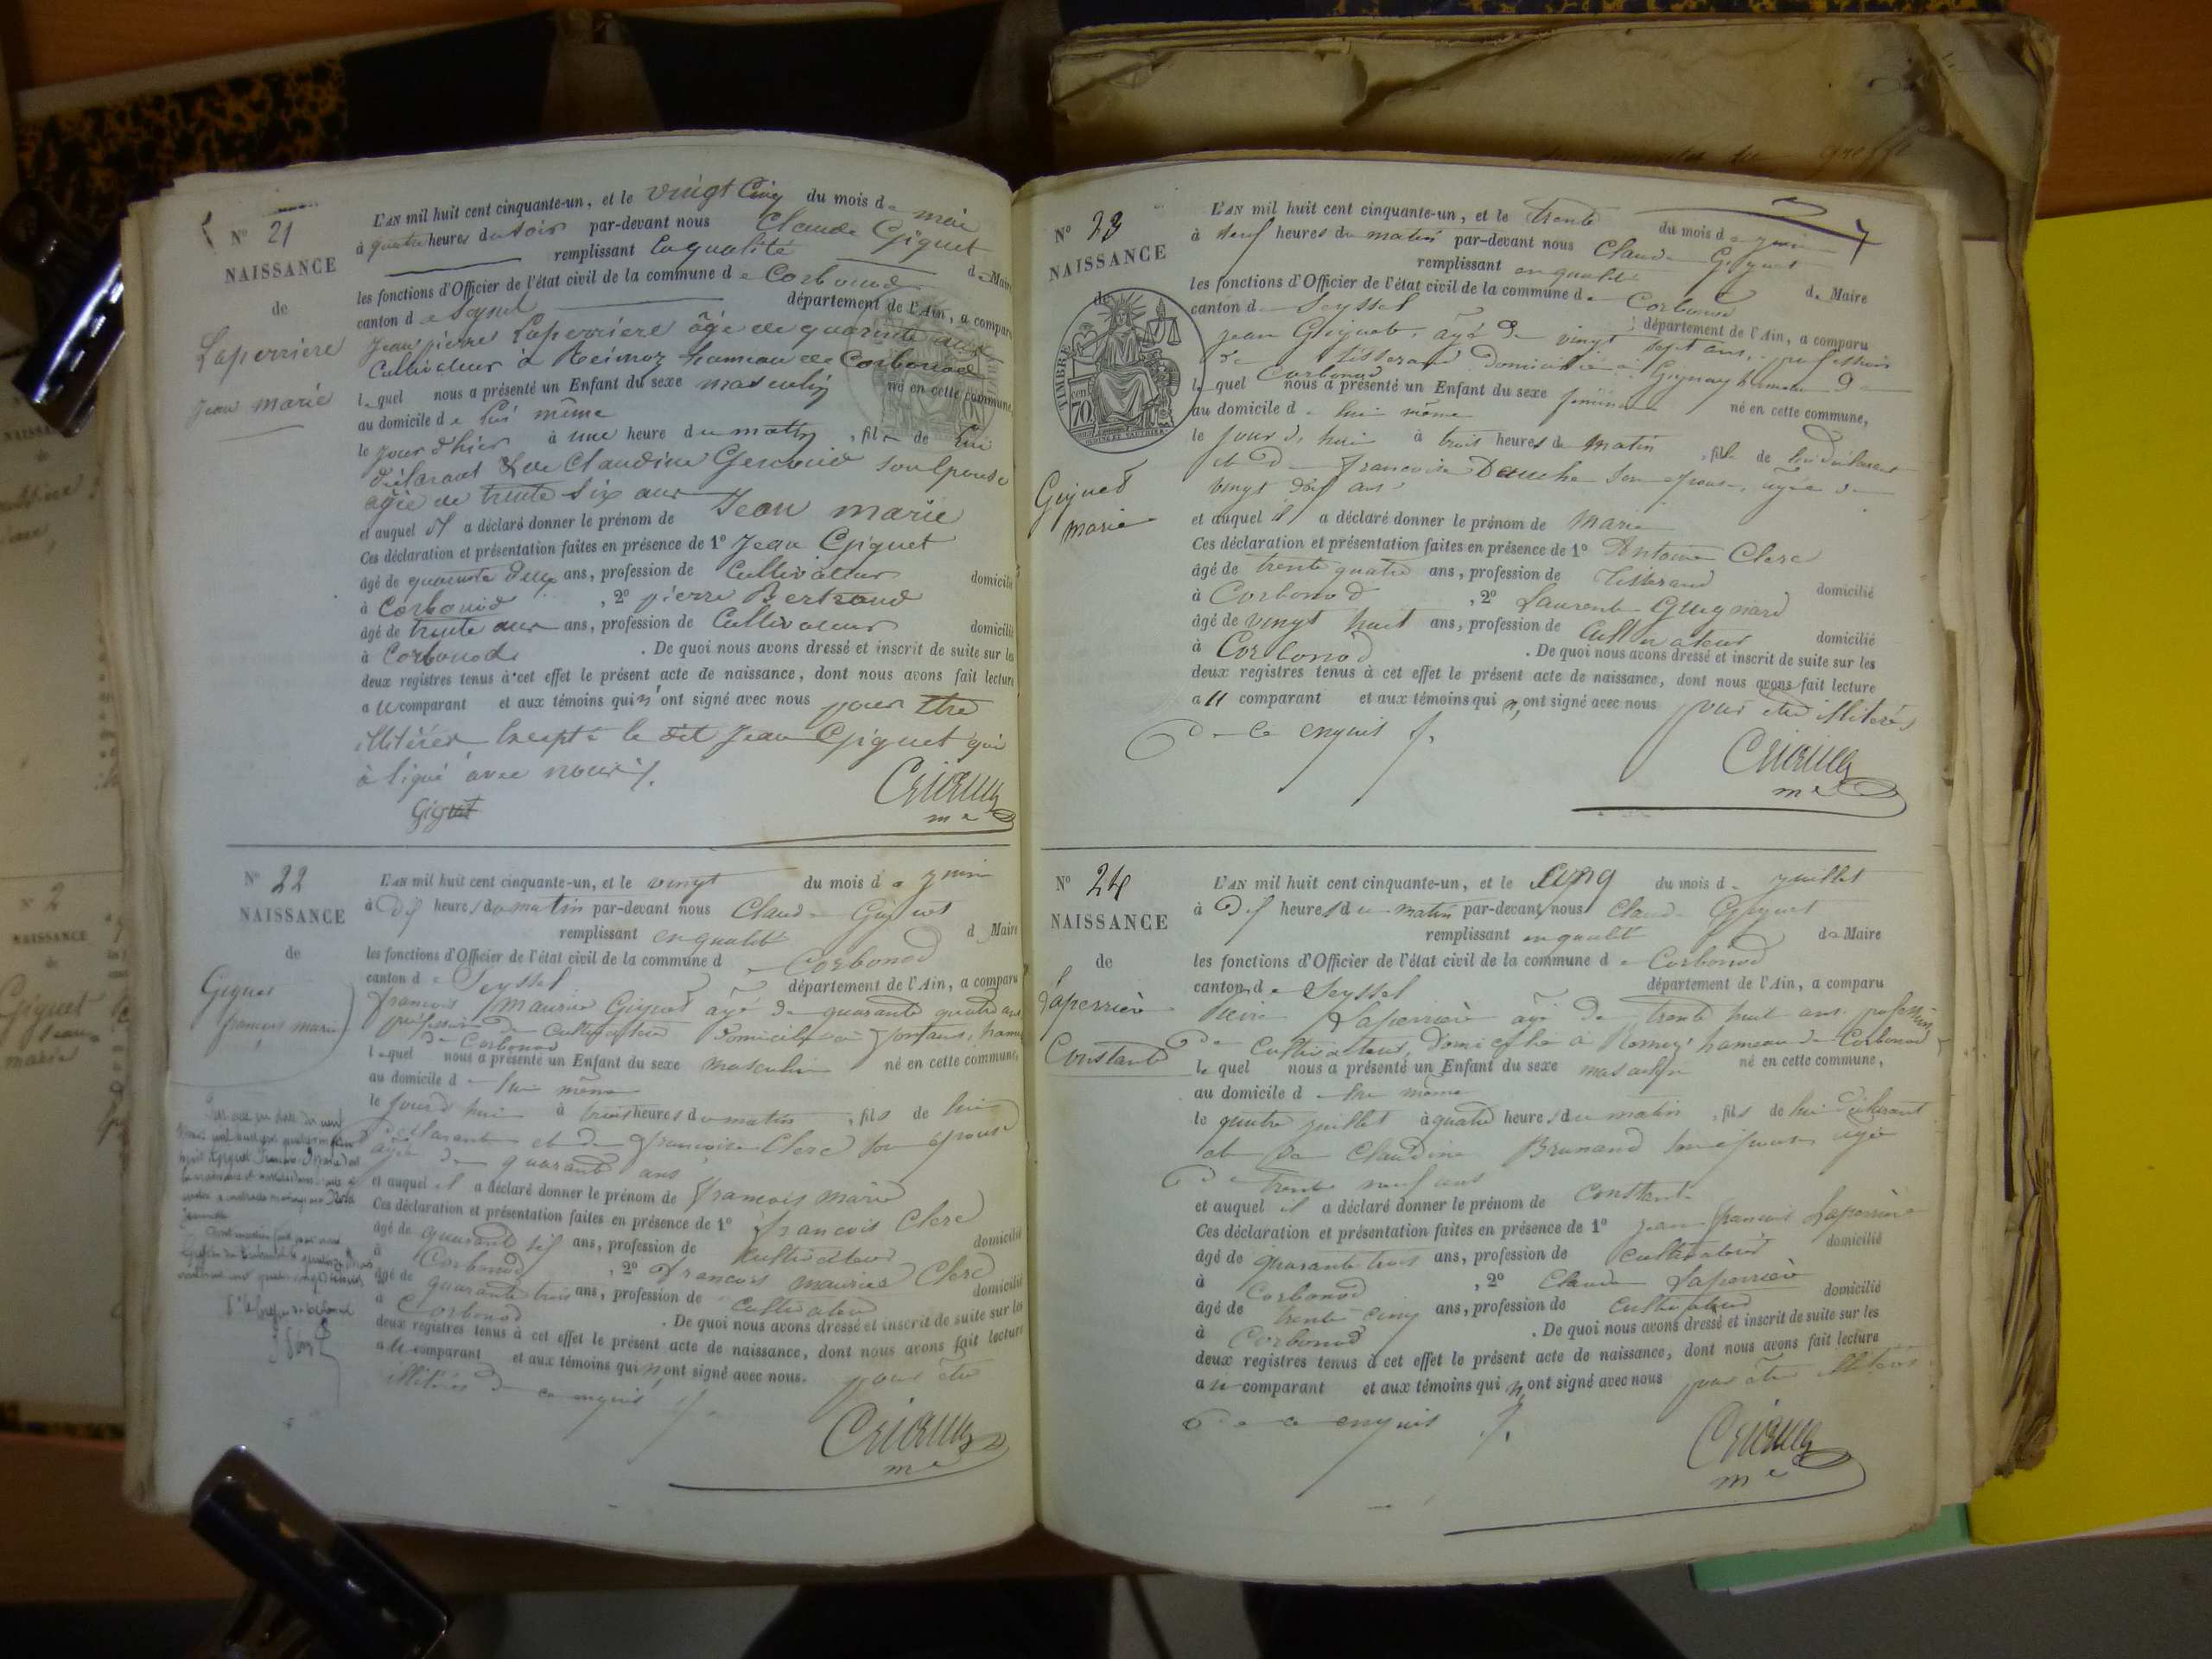 N° 21
NAISSANCE
de
Laperriere
Jean marie
L'AN mil huit cent cinquante-un, et le vingt Cinq du mois de mai
à quatre heures du soir par-devant nous Claude Giguet
remplissant la qualité de Maire
les fonctions d'Officier de l'état civil de la commune de Corbonod
canton de Seyssel département de l'Ain, a comparu
Jean pierre Laperriere âgé de quarante ans
Cultivateur à Reimoz hameau de Corbonod
lequel nous a présenté un Enfant du sexe masculin né en cette commune,
au domicile de lui même
le jour d'hier à une heure du matin, fils de lui
déclarant & de Claudine Genoud son Epouse
agée de trente six ans
et auquel il a déclaré donner le prénom de Jean marie
Ces déclaration et présentation faites en présence de 1° Jean Giguet
âgé de quarante deux ans, profession de Cultivateur domicilié
à Corbonod, 2° pierre Bertrand
âgé de trente ans, profession de Cultivateur domicilié
à Corbonod. De quoi nous avons dressé et inscrit de suite sur les
deux registres tenus à cet effet le présent acte de naissance, dont nous avons fait lecture
au comparant et aux témoins qui n'ont signé avec nous pour être
illitérés Excepté le dit Jean Giguet qui
à signé avec nous ./.
Giguet
me
N° 22
NAISSANCE
de
Giguet
françois marie
L'AN mil huit cent cinquante-un, et le vingt du mois de juin
à dix heures du matin par-devant nous Claude Giguet
remplissant en qualité de Maire
les fonctions d'Officier de l'état civil de la commune de Corbonod
canton de Seyssel département de l'Ain, a comparu
françois Maurice Giguet âgé de quarante quatre ans
profession de Cultivateur Domicilié à hameau
de Corbonod
lequel nous a présenté un Enfant du sexe masculin né en cette commune,
au domicile de lui même
le jourd'hui à trois heures du matin, fils de lui
déclarant et de françoise Clerc son épouse
âgée de quarante ans
et auquel il a déclaré donner le prénom de françois marie
Ces déclaration et présentation faites en présence de 1° françois Clerc
âgé de quarante six ans, profession de Cultivateur domicilié
à Corbonod, 2° françois maurice Clerc
âgé de quarante trois ans, profession de Cultivateur domicilié
à Corbonod. De quoi nous avons dressé et inscrit de suite sur les
deux registres tenus à cet effet le présent acte de naissance, dont nous avons fait lecture
au comparant et aux témoins qui n'ont signé avec nous. pour être
illitérés de ce enquis ./.
me
N° 23
NAISSANCE
de
TIMBRE
70
Giguet
marie
L'AN mil huit cent cinquante-un, et le trente du mois de juin
à neuf heures du matin par-devant nous Claude Giguet
remplissant en qualité de Maire
les fonctions d'Officier de l'état civil de la commune de Corbonod
canton de Seyssel département de l'Ain, a comparu
jean Giguet, âgé de vingt sept ans, profession
de tisserand Domicilié à hameau de
Corbonod
lequel nous a présenté un Enfant du sexe féminin né en cette commune,
au domicile de lui même
le jourd'hui à trois heures du matin, fille de lui déclarant
et de françoise son épouse, agée de
vingt ans
et auquel il a déclaré donner le prénom de marie
Ces déclaration et présentation faites en présence de 1° Antoine Clerc
âgé de trente quatre ans, profession de Tisserand domicilié
à Corbonod, 2° Laurent
âgé de vingt huit ans, profession de Cultivateur domicilié
à Corbonod. De quoi nous avons dressé et inscrit de suite sur les
deux registres tenus à cet effet le présent acte de naissance, dont nous avons fait lecture
au comparant et aux témoins qui n'ont signé avec nous pour être illitérés
De ce enquis ./.
me
N° 24
NAISSANCE
de
Laperrière
Constant
L'AN mil huit cent cinquante-un, et le cinq du mois de juillet
à dix heures du matin par-devant nous Claude Giguet
remplissant en qualité de Maire
les fonctions d'Officier de l'état civil de la commune de Corbonod
canton de Seyssel département de l'Ain, a comparu
Pierre Laperrière âgé de trente huit ans profession
de Cultivateur, domicilié à Remoz hameau de Corbonod
lequel nous a présenté un Enfant du sexe masculin né en cette commune,
au domicile de lui même
le quatre juillet à quatre heures du matin, fils de lui déclarant
et de Claudine Brunand son épouse agée
De trente neuf ans
et auquel il a déclaré donner le prénom de Constant
Ces déclaration et présentation faites en présence de 1° jean françois Laperrière
âgé de quarante trois ans, profession de cultivateur domicilié
à Corbonod, 2° Claude Laperrière
âgé de trente cinq ans, profession de cultivateur domicilié
à Corbonod. De quoi nous avons dressé et inscrit de suite sur les
deux registres tenus à cet effet le présent acte de naissance, dont nous avons fait lecture
au comparant et aux témoins qui n'ont signé avec nous pour être illitérés
De ce enquis ./.
me